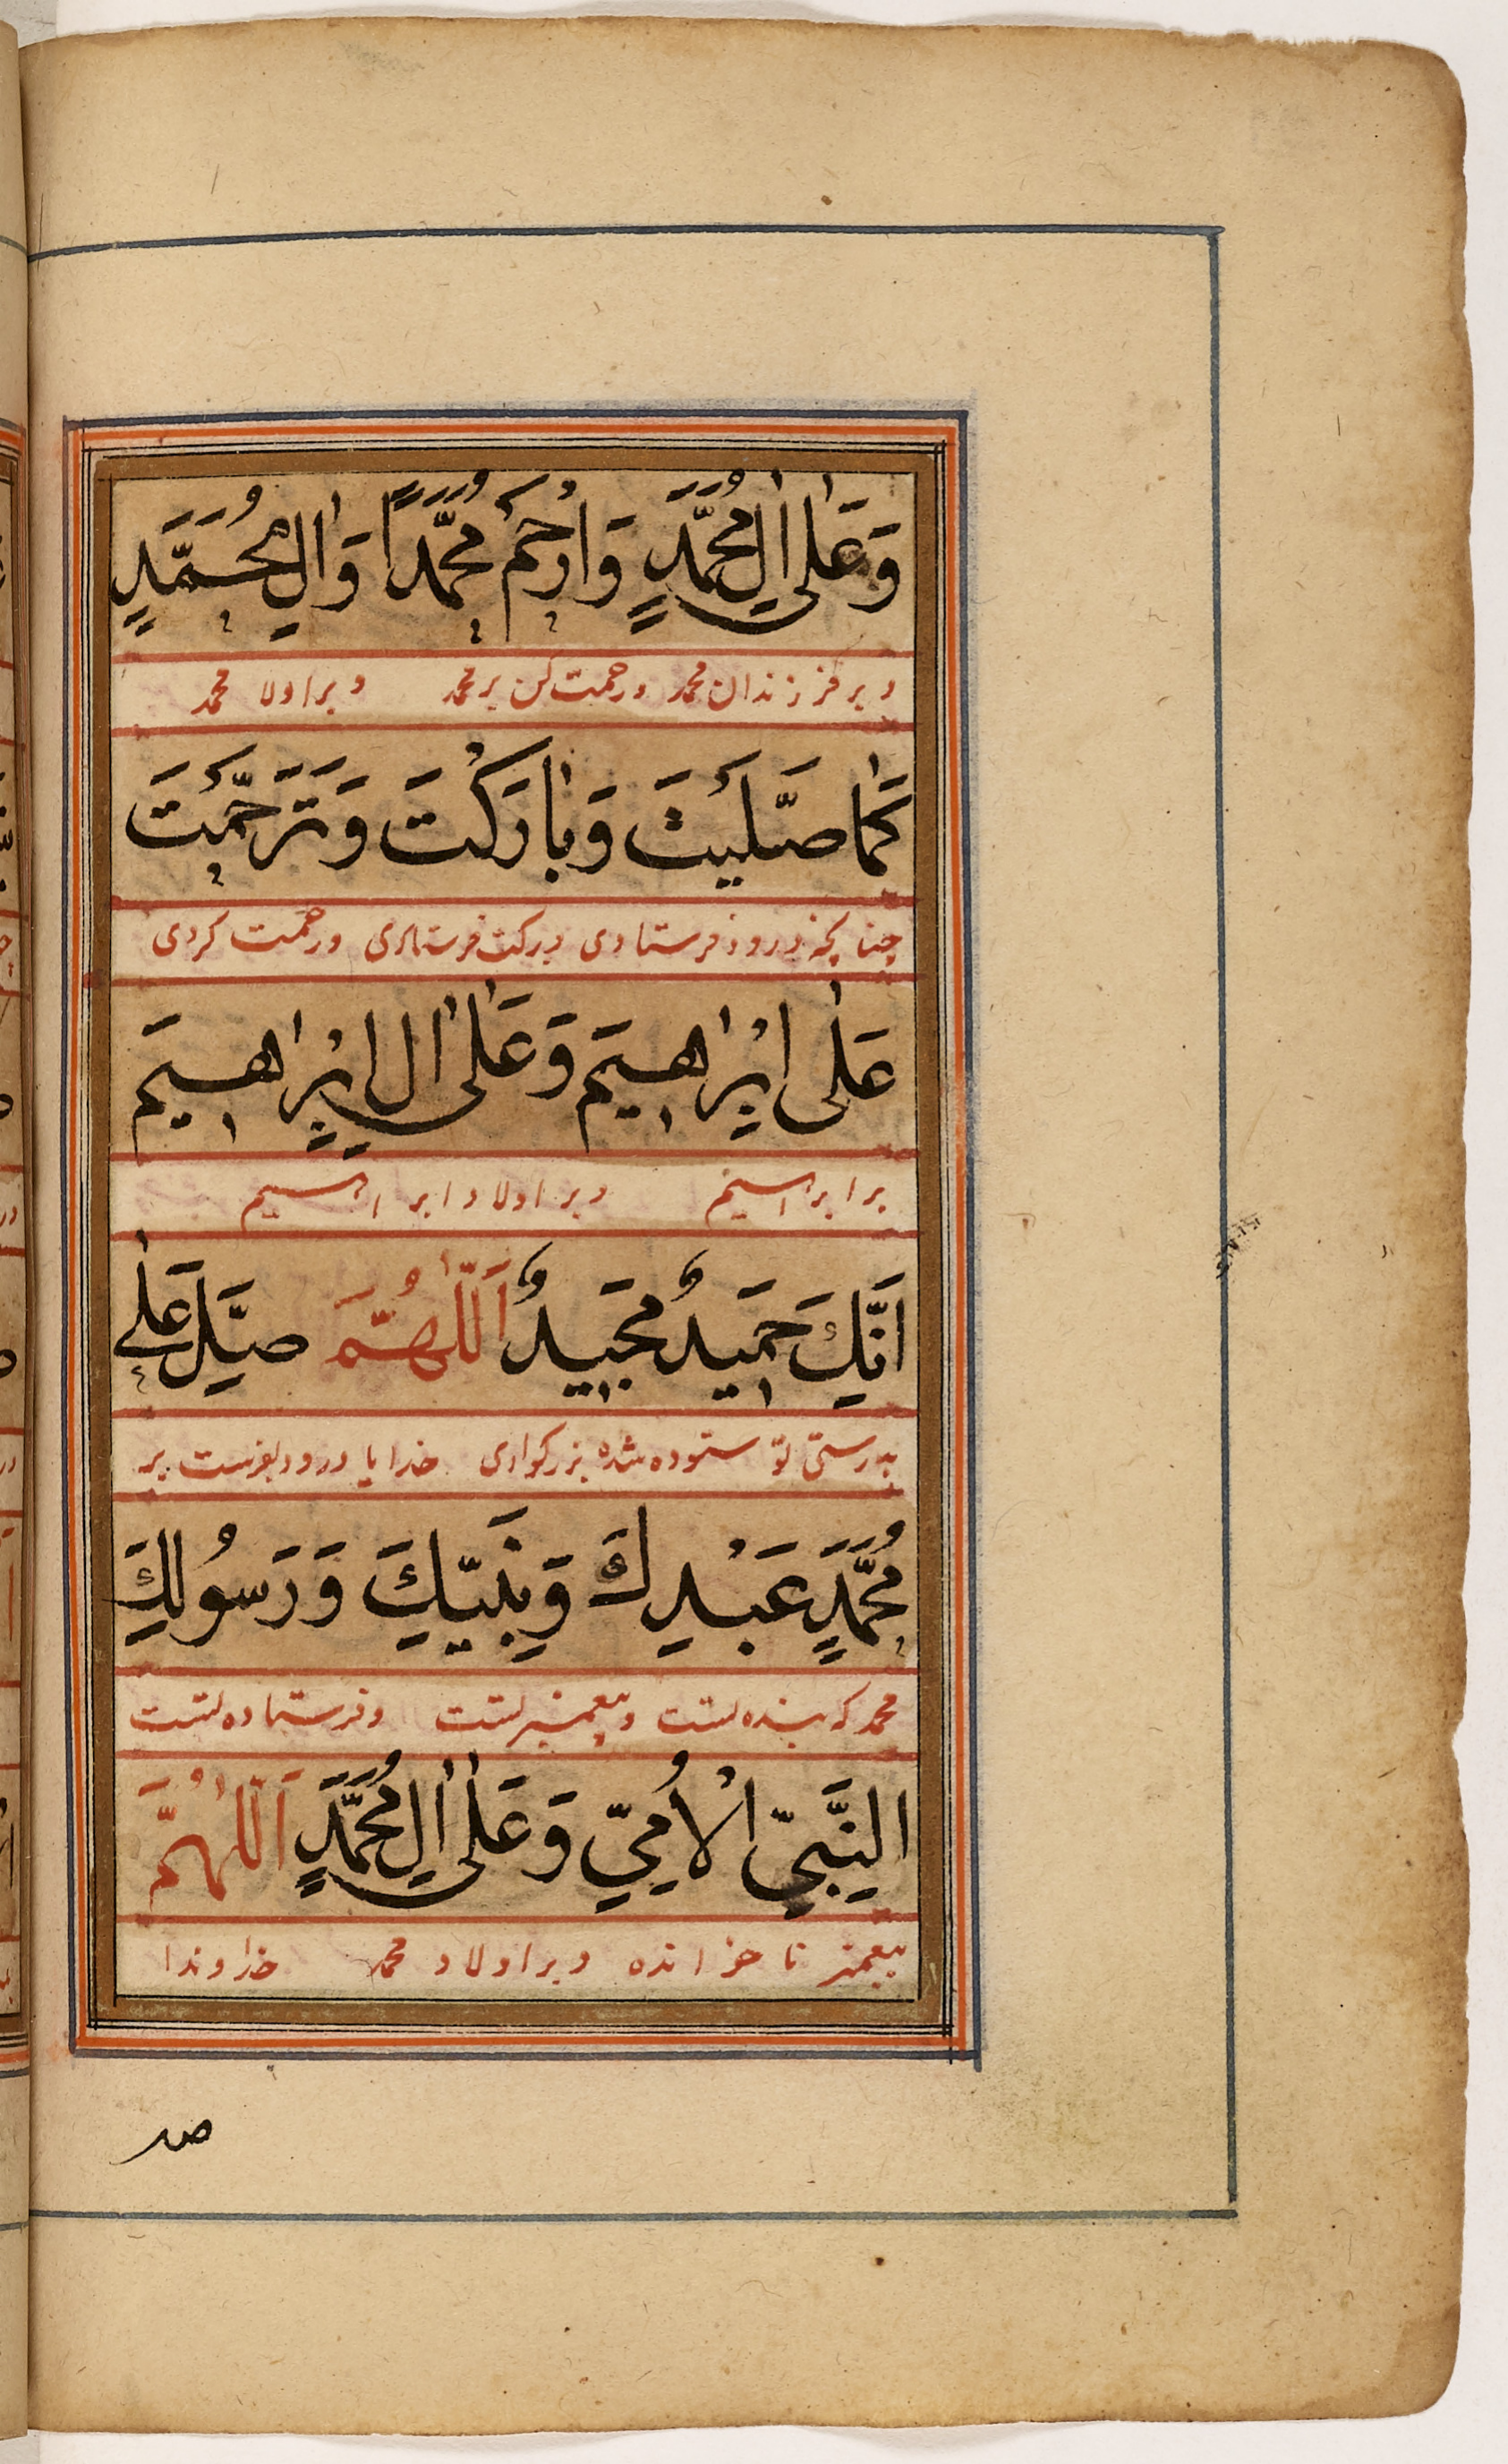 وَعَلٰى اٰلِ مُحَمَّدٍ وَارْحَمْ مُحَمَّدًا وَاٰلِ مُحَمَّدٍ
و بر فرزندان محمد و رحمت کن بر محمد و بر اولا محمد
كَمٰا صَلَّيْتَ وَبٰارَكْتَ وَتَرَحَّمْتَ
چنانچه درود فرستادی و برکت فرستادی و رحمت کردی
عَلٰى اِبْرٰاهيمَ وَعَلٰى اٰلِ اِبْرٰاهيمَ
بر ابراهیم و بر اولاد ابراهیم
اِنَّكَ حَميدٌ مَجيدٌ اَللّٰهُمَّ صَلِّ عَلٰى
بدرستی تو ستوده شده بزرکواری خدایا درود بفرست بر
مُحَمَّدٍ عَبْدِكَ وَنَبِيِّكَ وَرَسُولِكَ
محمد که بنده تست و پیغمبر تست و فرستاده تست
النَّبِيِّ الْاُمِّيِّ وَعَلٰى اٰلِ مُحَمَّدٍ اَللّٰهُمَّ
پیغمبر نا خوانده و بر اولاد محمد خداوندا